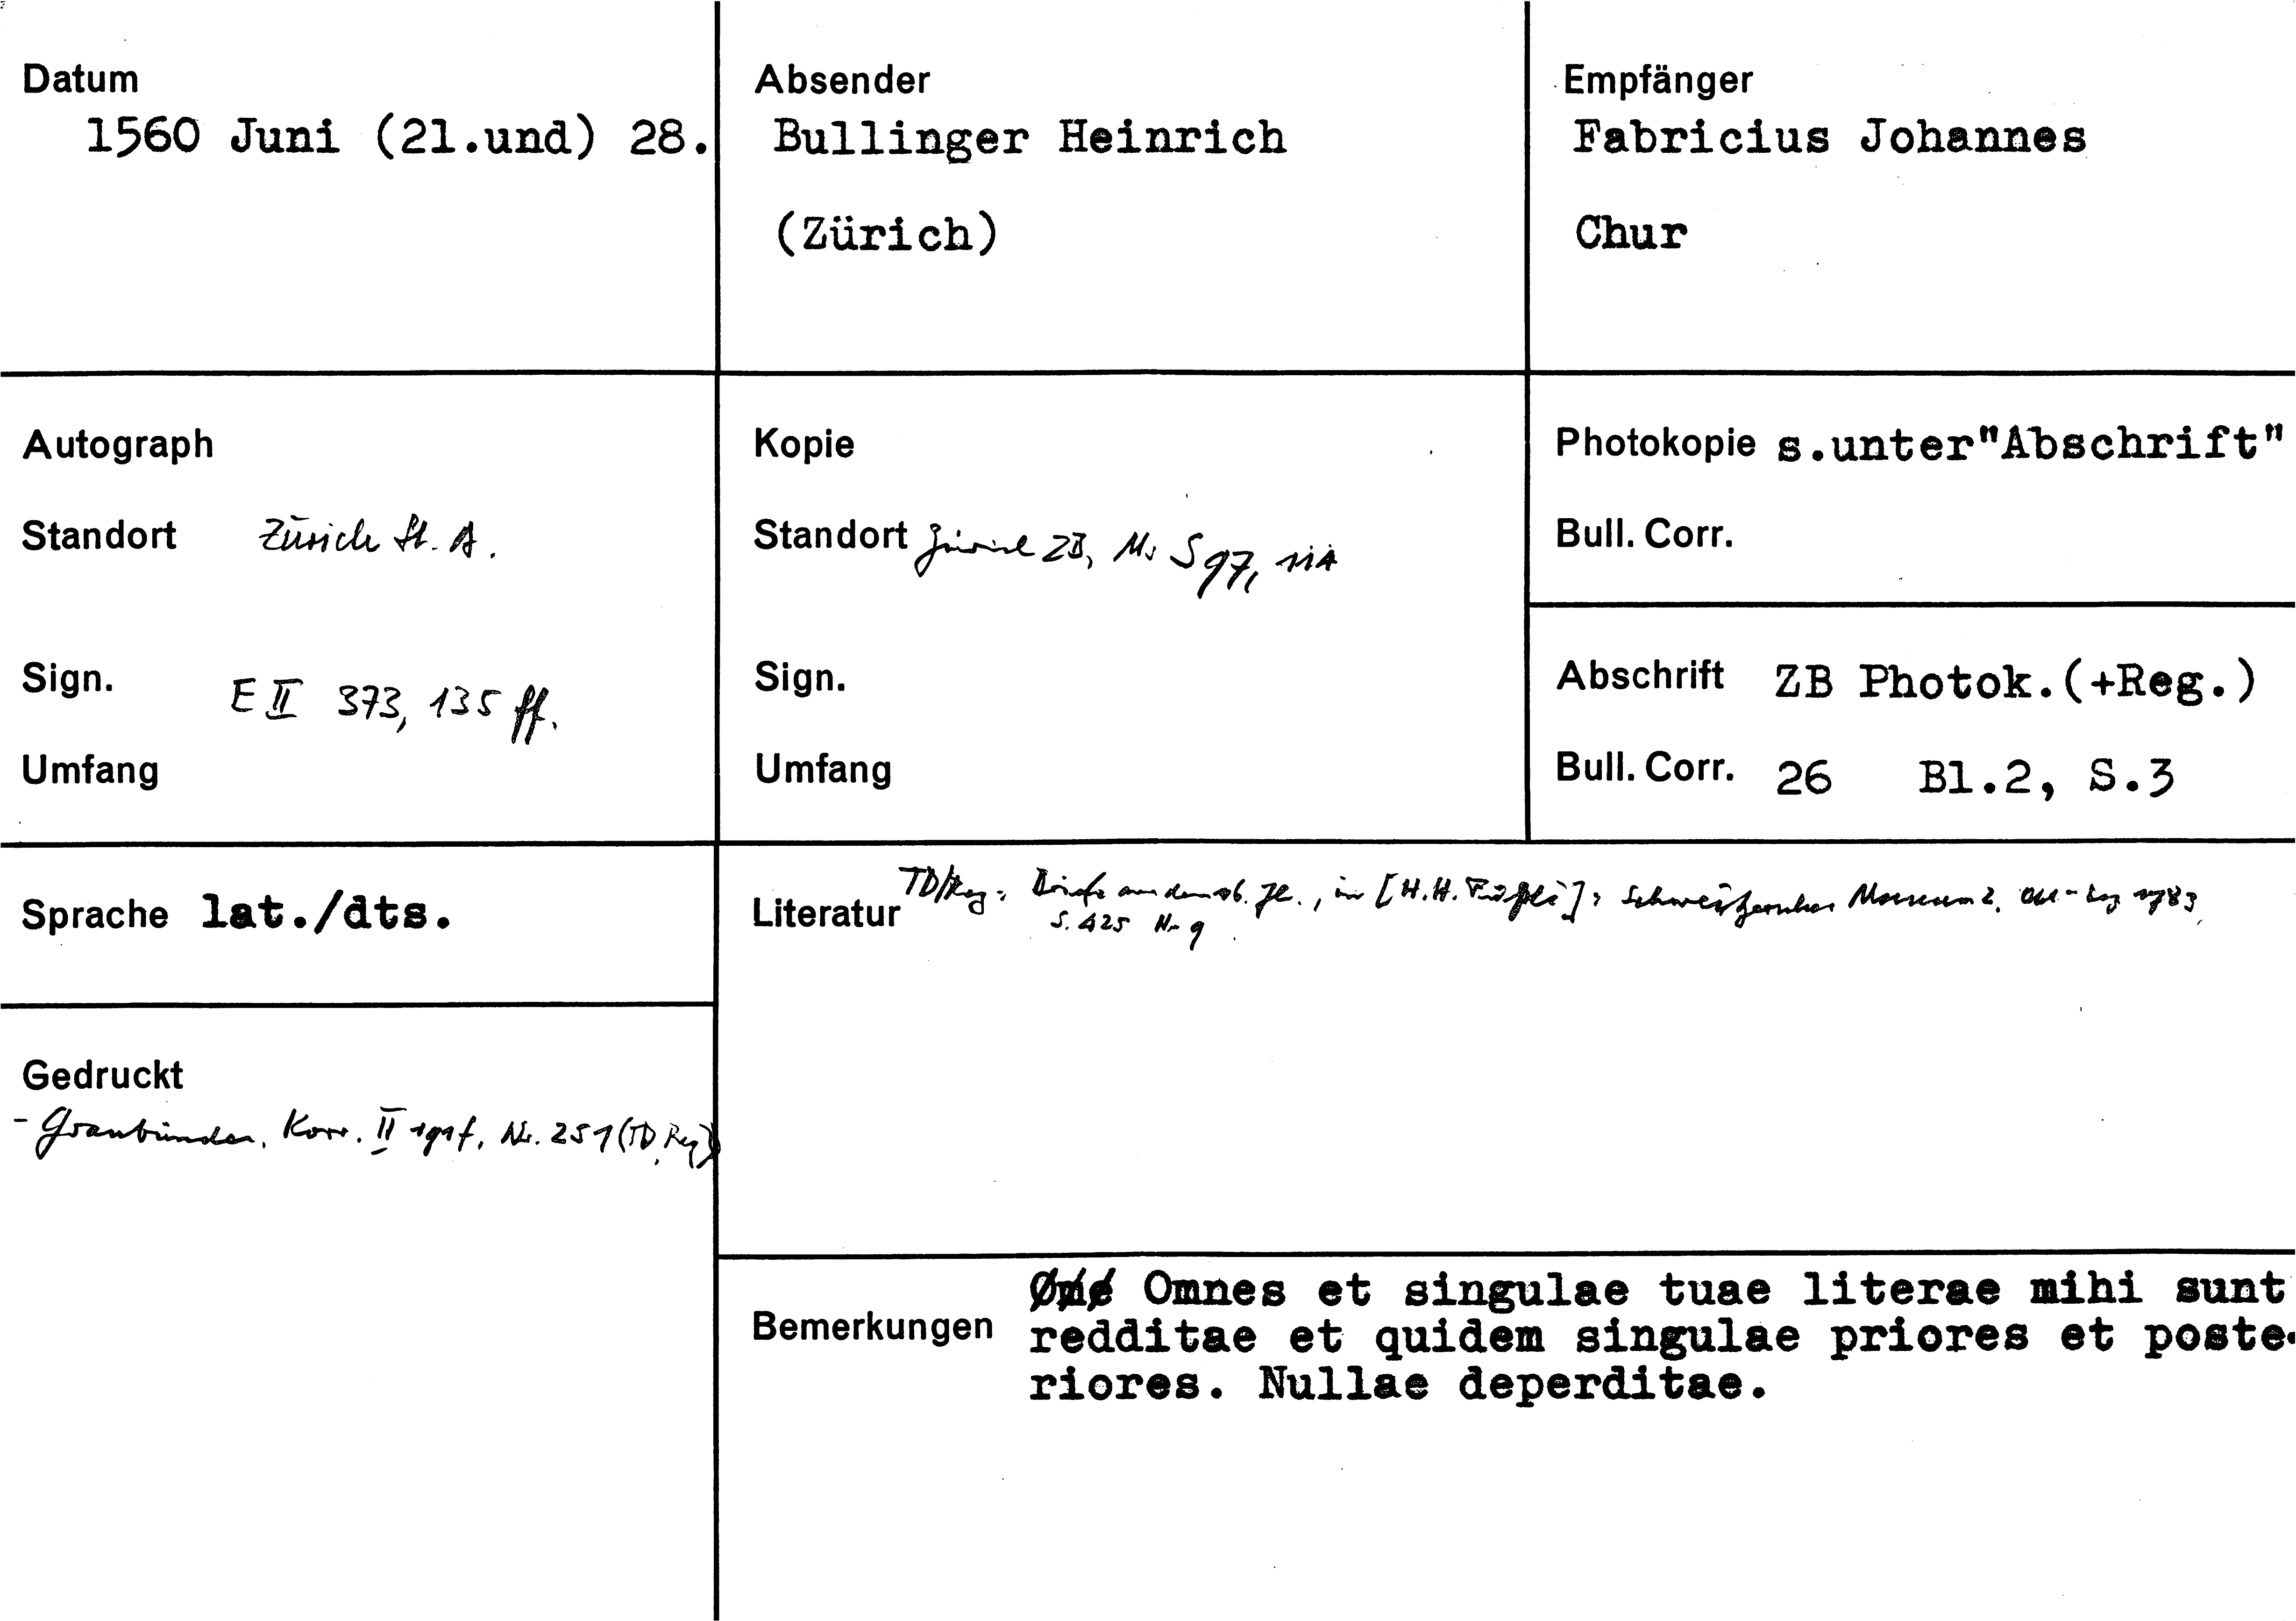 Datum
1560 Juni (21.und) 28.
Absender
Bullinger Heinrich
(Zürich)
Empfänger
Fabricius Johannes
Chur
Autograph
Standort Zürich St. A.
Sign. E II 373, 135 ff.
Umfang
Kopie
Standort Zürich ZB, Ms S 97, 111A
Sign.
Umfang
Photokopie s.unter"Abschrift"
Bull. Corr.
Abschrift ZB Photok.(+Reg.)
Bull. Corr. 26 Bl.2, S.3
Sprache lat./dts.
Literatur TD/Reg: Briefe aus dem 16. Jh., in [H.H. Füßli]: Schweitzersches Museum 2, 1783,
S. 425 Nr 9
Gedruckt
- Graubünden, Korr. II 191f, Nr. 251 (TD, Reg)
Bemerkungen Omnes et singulae tuae literae mihi sunt
redditae et quidem singulae priores et poste-
riores. Nullae deperditae.